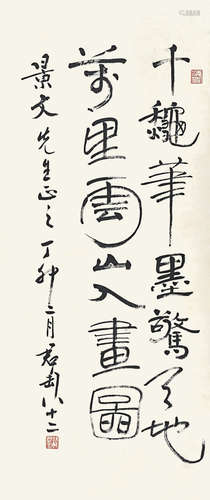 千龝筆墨驚天地
萬里雲山入畫圖
景文先生正之丁卯二月君匋八十二